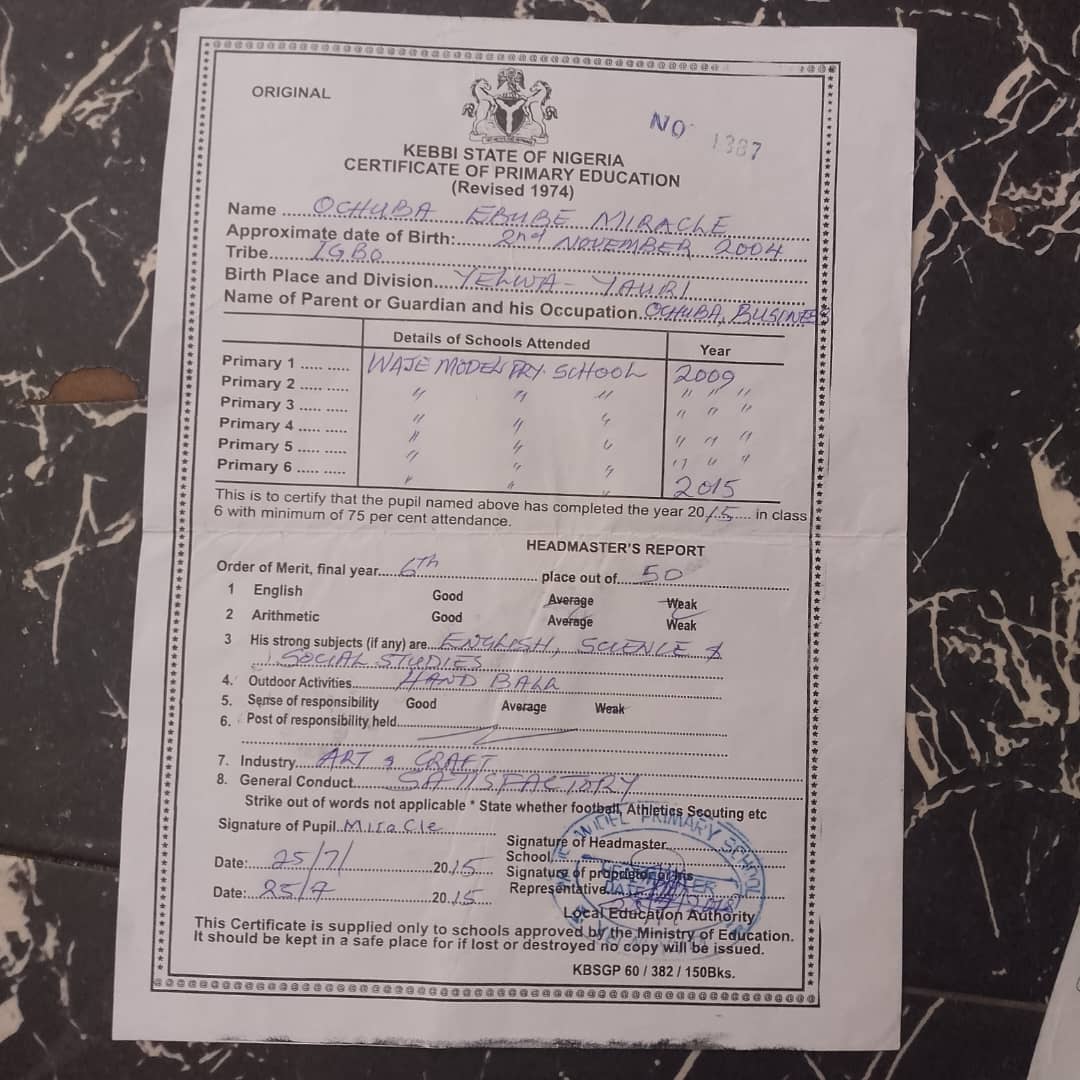 ORIGINAL
NO 1387
KEBBI STATE OF NIGERIA
CERTIFICATE OF PRIMARY EDUCATION
(Revised 1974)
Name ..... OCHUBA EBUBE MIRACLE
Approximate date of Birth:..... 2nd NOVEMBER 2004
Tribe..... IGBO
Birth Place and Division..... YELWA - YAURI
Name of Parent or Guardian and his Occupation. OCHUBA, BUSINES
Details of Schools Attended Year
Primary 1 ..... ..... WAJE MODEL PRY. SCHOOL 2009
Primary 2 ..... ..... " " " " " "
Primary 3 ..... ..... " " " " " "
Primary 4 ..... ..... " " " " " "
Primary 5 ..... ..... " " " " " "
Primary 6 ..... ..... " " " 2015
This is to certify that the pupil named above has completed the year 2015..... in class
6 with minimum of 75 per cent attendance.
HEADMASTER'S REPORT
Order of Merit, final year..... 6th ..... place out of..... 50
1 English Good Average Weak
2 Arithmetic Good Average Weak
3 His strong subjects (if any) are..... ENGLISH, SCIENCE &
SOCIAL STUDIES
4. Outdoor Activities..... HAND BALL
5. Sense of responsibility Good Average Weak
6. Post of responsibility held.....
7. Industry..... ART & CRAFT
8. General Conduct..... SATISFACTORY
Strike out of words not applicable * State whether football, Athletics Scouting etc
Signature of Pupil. Miracle
Signature of Headmaster.....
School.....
Date:..... 25/7/ 2015
Signature of proprietor or his
Representative.....
Date:..... 25/7 2015
Local Education Authority
MODEL PRIMARY SCHOOL
DATE
This Certificate is supplied only to schools approved by the Ministry of Education.
It should be kept in a safe place for if lost or destroyed no copy will be issued.
KBSGP 60 / 382 / 150Bks.